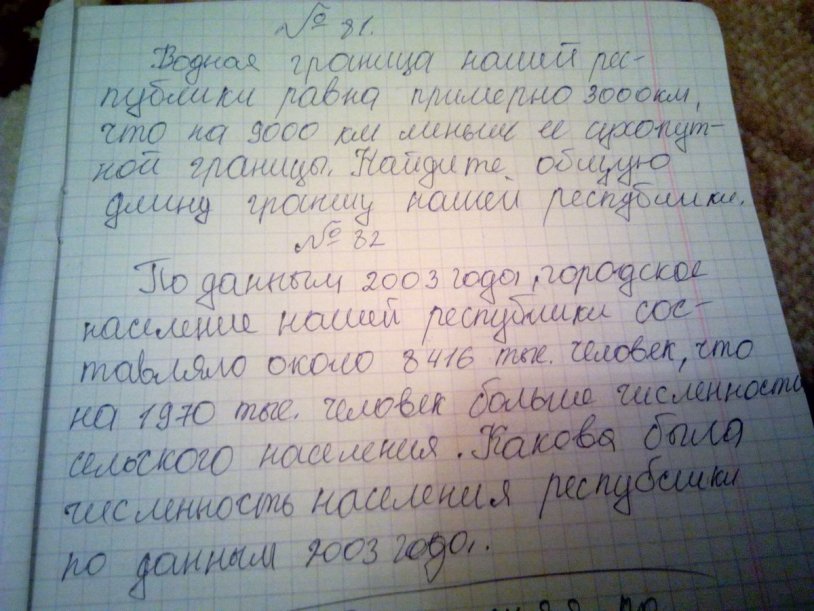 № 81.
Водная граница нашей рес-
публики равна примерно 3000км,
что на 9000 км меньше ее сухопут-
ной границы. Найдите общую
длину границу нашей республики.
№ 82
По данным 2003 года, городское
население нашей республики сос-
тавляло около 8416 тыс. человек, что
на 1970 тыс. человек больше численности
сельского населения. Какова была
численность населения республики
по данным 2003 года.